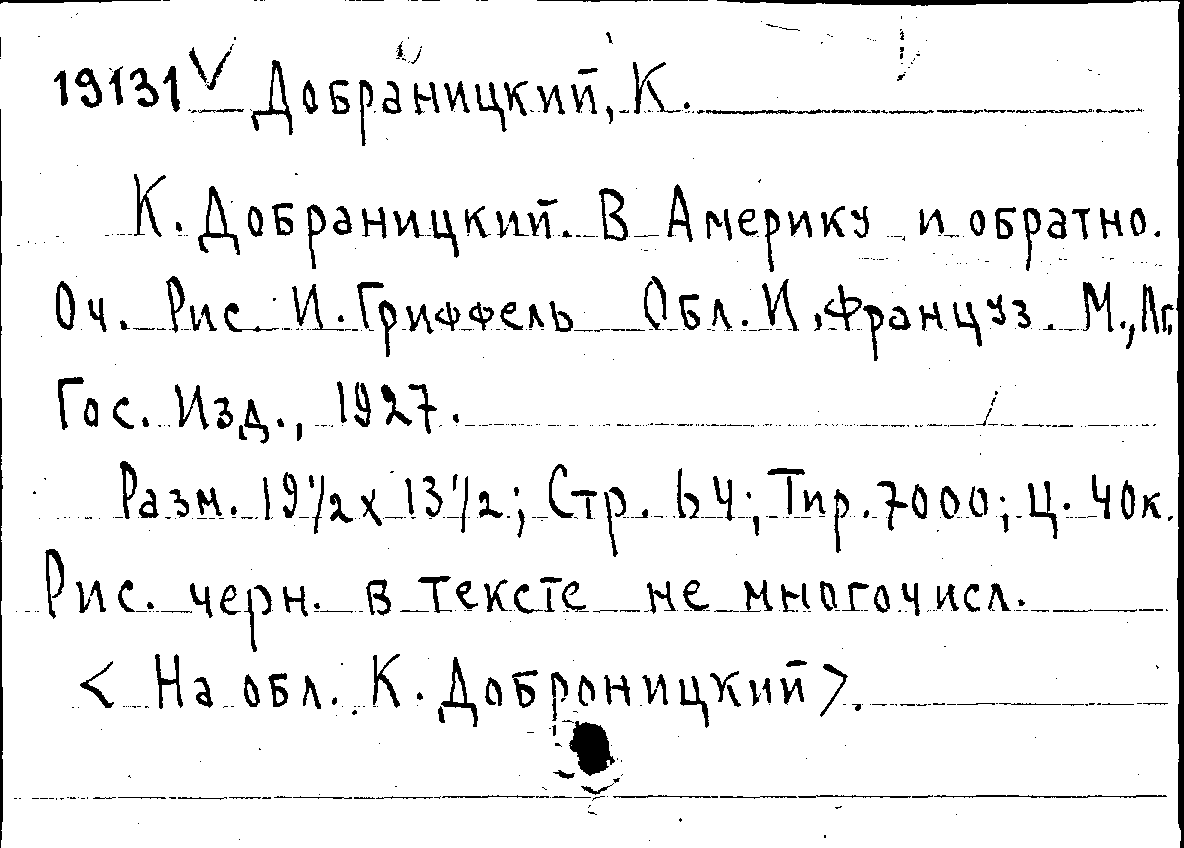 19131 V Добраницкий, К.
К. Добраницкий. В Америку и обратно.
Оч. Рис. И. Гриффель Обл. И. Француз. М., Лг.
Гос. Изд., 1927.
Разм. 19 1/2 x 13 1/2; Стр. 64; Тир. 7000; Ц. 40к.
Рис. черн. в тексте не многочисл.
< На обл. К. Доброницкий >.